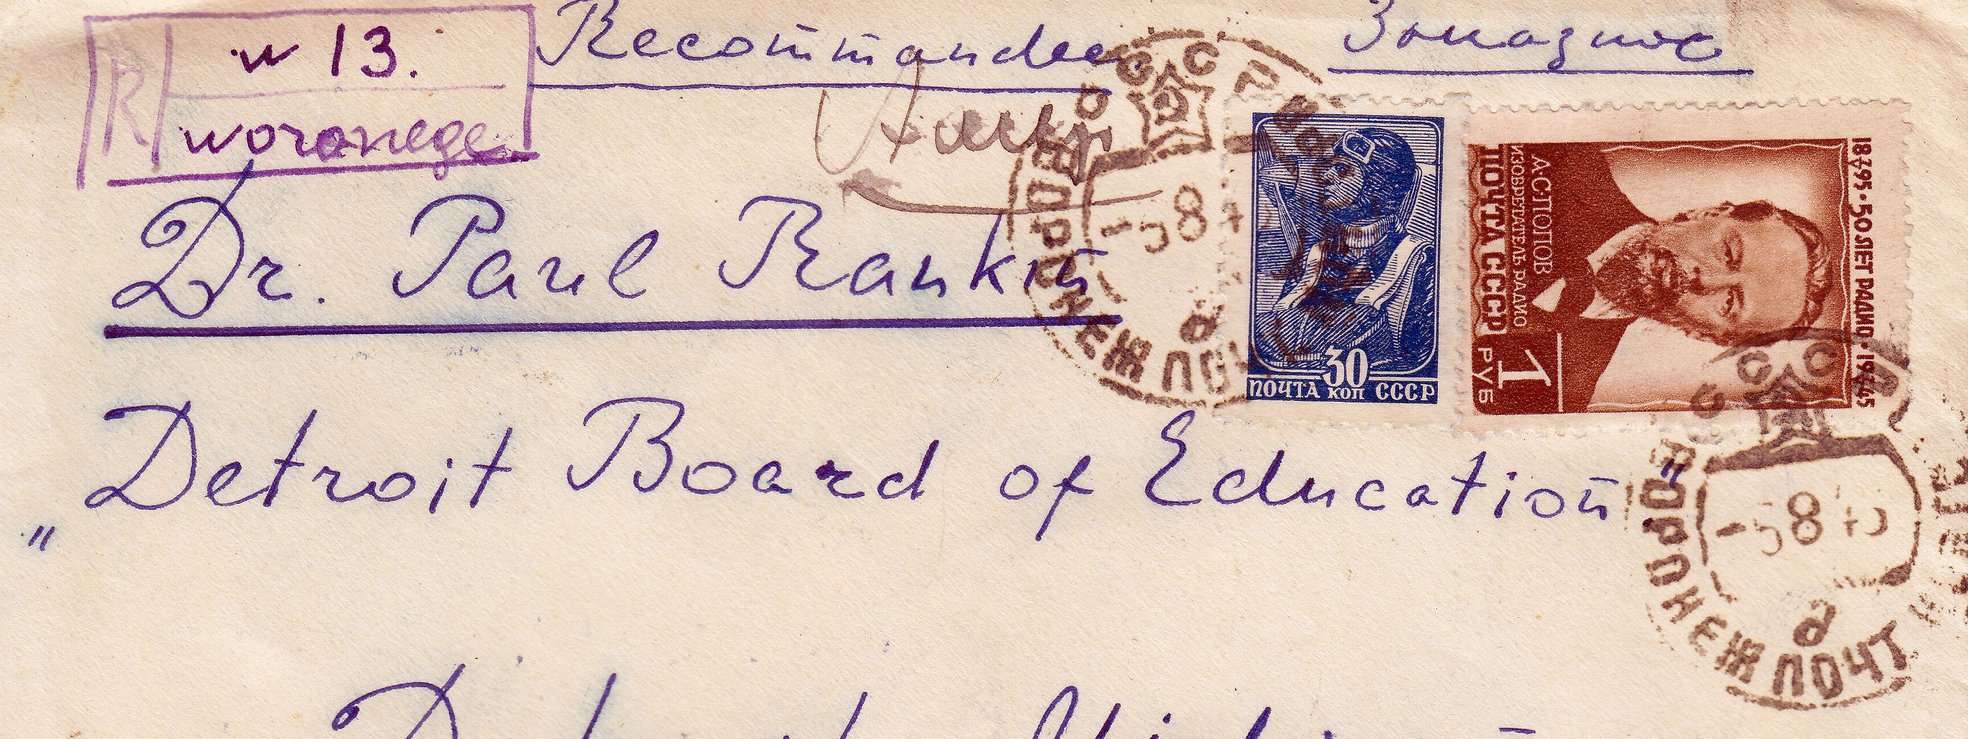 Recommandee Заказное
R N 13.
woronege
Dr. Paul Rankin
30
ПОЧТА КОП СССР
1895 · 50 ЛЕТ РАДИО · 1945
А·С·ПОПОВ
ИЗОБРЕТАТЕЛЬ РАДИО
ПОЧТА СССР
1 РУБ
СССР
ВОРОНЕЖ ПОЧТ
5 8 45
„Detroit Board of Education"
СССР
ВОРОНЕЖ ПОЧТ
5 8 45
Detroit Michigan